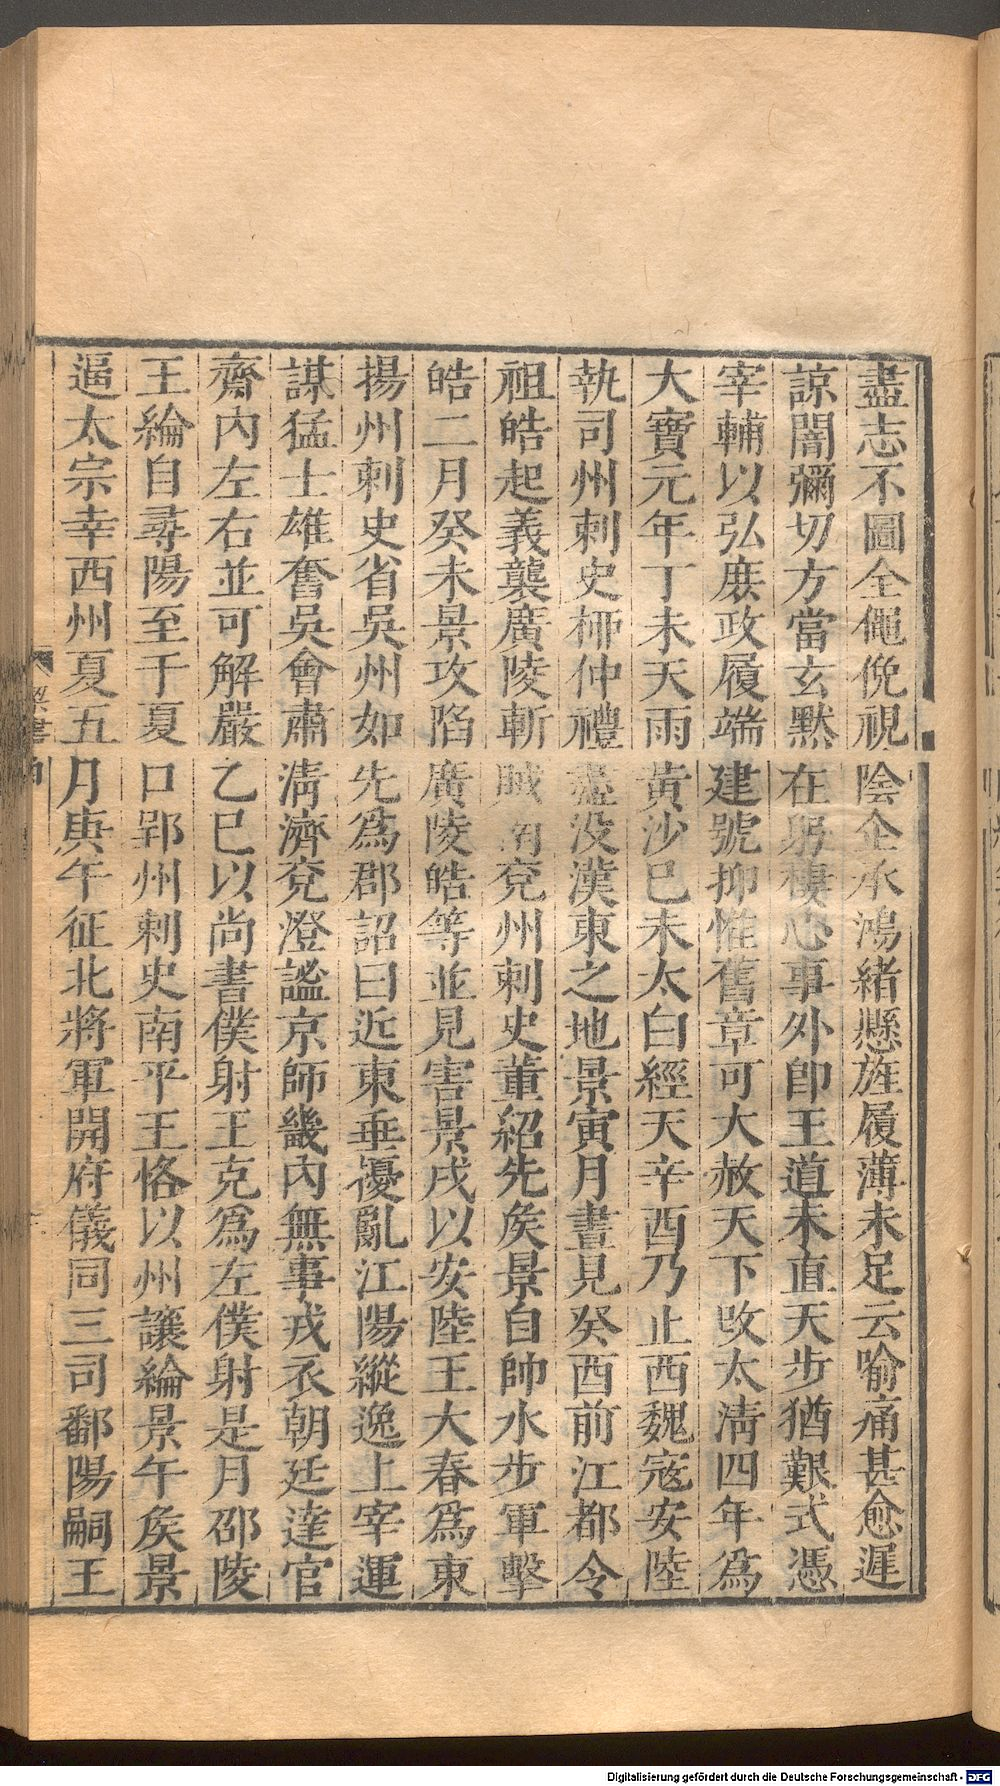 盡志不圖仝僶俛視陰企承鴻緒懸旌履薄未足云喻痛甚愈遲
諒闇彌切方當玄默在躬棲心事外卽王道未直天步猶艱式憑
宰輔以弘庶政履端建號抑惟舊章可大赦天下改太淸四年爲
大寶元年丁未天雨黃沙巳未太白經天辛酉乃止西魏寇安陸
執司州刺史栁仲禮盡没漢東之地景寅月晝見癸酉前江都令
祖皓起義襲廣陵斬賊南兗州刺史董紹先矦景自帥水步軍擊
皓二月癸未景攻陷廣陵皓等並見害景戌以安陸王大春爲東
揚州刺史省吳州如先爲郡詔曰近東垂擾亂江陽縱逸上宰運
謀猛士雄奮吳會肅淸濟兗澄謐京師畿內無事戎衣朝廷達官
齋內左右並可解嚴乙巳以尚書僕射王克爲左僕射是月邵陵
王綸自尋陽至于夏口郢州刺史南平王恪以州讓綸景午矦景
逼太宗幸西州夏五月庚午征北將軍開府儀同三司鄱陽嗣王
梁書
Digitalisierung gefördert durch die Deutsche Forschungsgemeinschaft - DFG